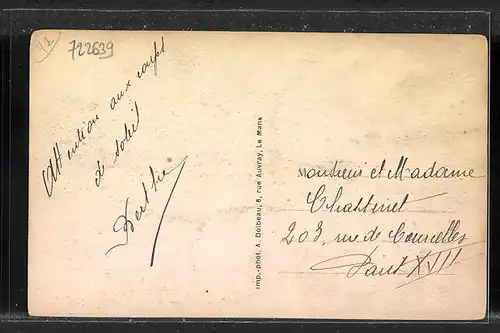 72
722639
Attention aux coups
de soleil
Berthe
Imp.-phot. A. Dolbeau, 6, rue Auvray, Le Mans
Monsieur et Madame
Chastinet
203, rue de Courcelles
Paris XVII